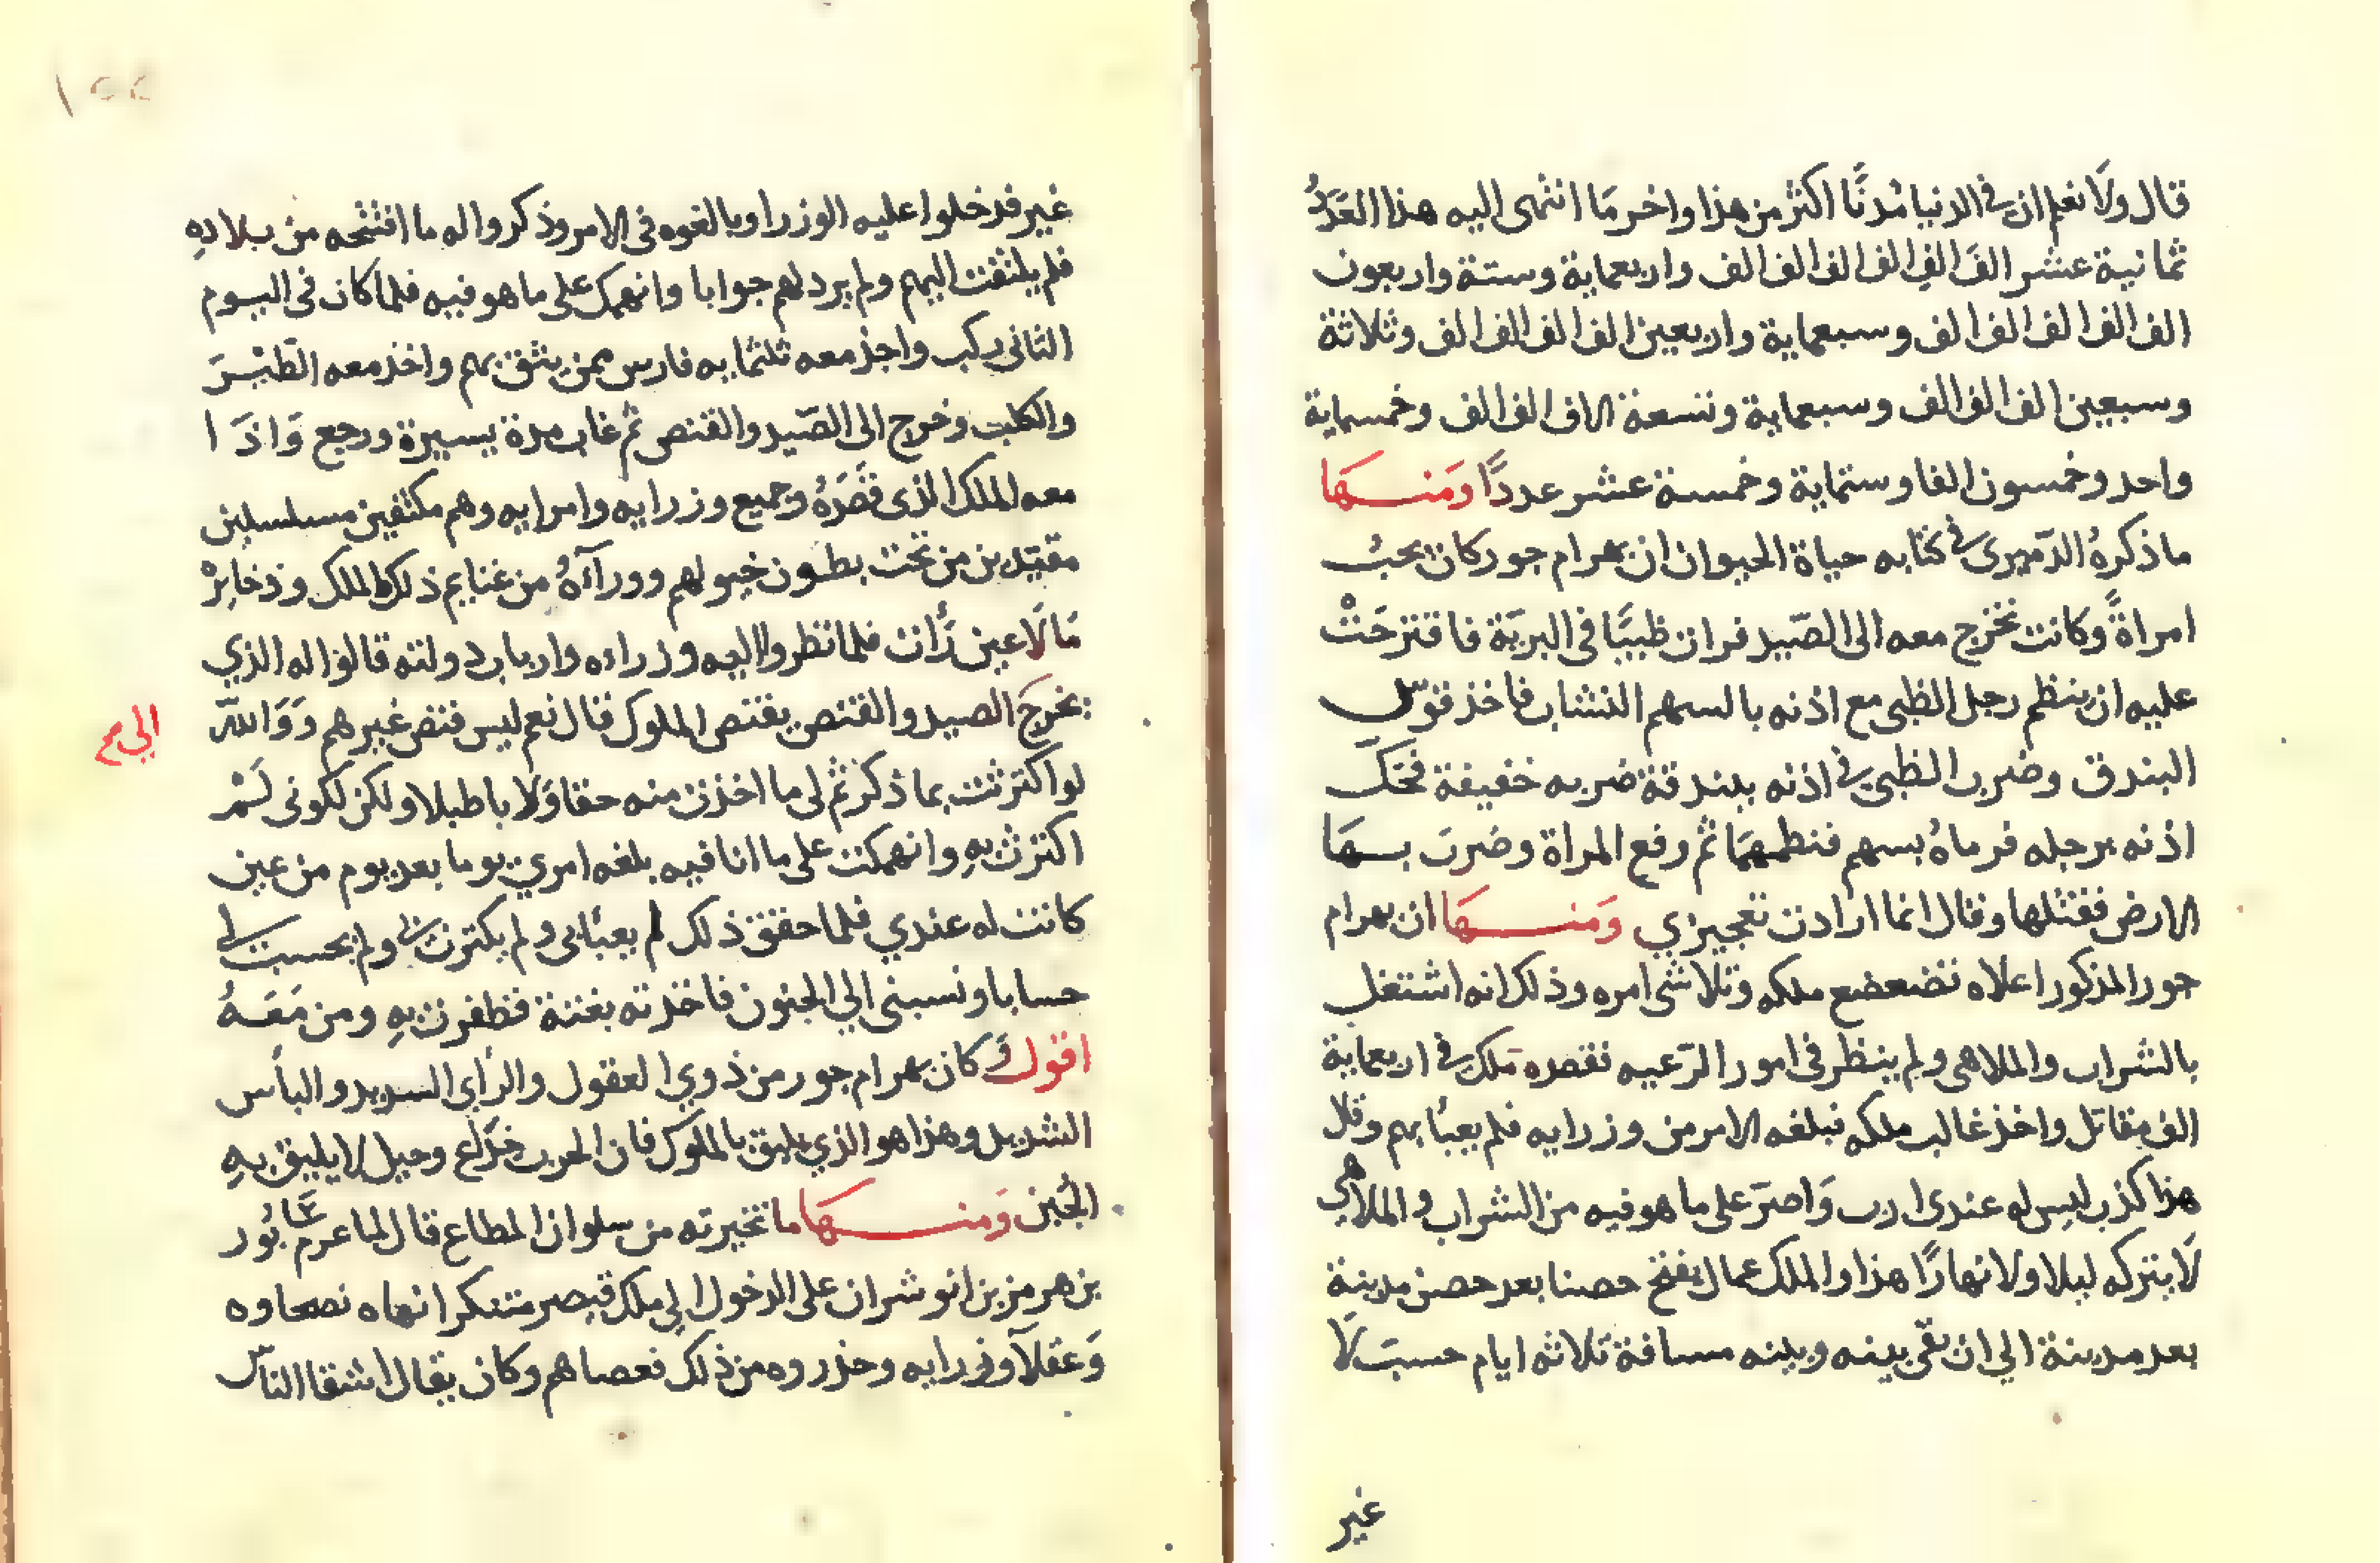 قال ولا نعلم ان في الدنيا مُدنًا اكثر من هذا واخر مَا انتهى اليه هذا العَدَدُ
ثمانية عشر الفَ الفِ الف الف الف الف واربعماية وستة واربعون
الف الف الف الف الف وسبعماية واربعين الف الف الف الف وثلاثة
وسبعين الف الف الف وسبعماية وتسعة الاف الف الف وخمسماية
واحد وخمسون الفا وستماية وخمسة عشر عددًا وَمنـــهَا
ما ذكرهُ الدّميرى في كتابه حياة الحيوان ان بهرام جور كان يحبُ
امراةً وكانت تخرج معه الى الصّيد فراى ظبيًا في البريّة فاقترحَتْ
عليه ان ينظم رجل الظبى مع اذنه بالسهم النشاب فاخذ قوّس
البندق وضرب الظبى في اذنه ببندقة ضربه خفيفة فحكّ
اذنه برجله فرماهُ بسهم فنظمهمَا ثم رفع المراة وضربَ بـــهَا
الارض فقتلها وقال انما ارادت تعجيزي وَمنـــهَا ان بهرام
جور المذكور اعلاه تضعضع ملكه وتلاشى امره وذلك انه اشتغل
بالشراب والملاهى ولم ينظر في امور الرّعيه فقصده ملك في اربعماية
الف مقاتل واخذ غالب ملكه فبلغه الامر من وزرايه فلم يعبأ بهم وقال
هذا كذب ليس له عندى ارب وَاصرّ على ما هو فيه من الشراب والملاهي
لَا يتركه ليلا ولا نهارًا هذا والملك عمال يفتح حصنا بعد حصن مدينة
بعد مدينة الي ان بقى بينه وبينه مسافة ثلاثه ايام حسبَ لَا
غير
غير فدخلوا عليه الوزرا وبالغوه في الامر وذكروا له ما افتتحه من بلاده
فلم يلتفت اليهم ولم يرد لهم جوابا وانهمك على ما هو فيه فلما كان في اليوم
الثانى ركب واخذ معه ثلثمايه فارس ممن يثق بهم واخذ معه الطّيْرَ
والكلب وخرج الى الصّيد والقنص ثم غاب مدة يسيرة ورجع وَاذَا
معه الملك الذى قصَدَهُ وجميع وزرايه وامرايه وهم مكتفين مسلسلين
مقيّدين من تحت بطون خيولهم وورآءهُ من غنايم ذلك الملك وذخايرْ
مَا لَا عين رَأت فلما نظروا اليه وزراءه وارباب دولته قالوا له الذي
يخرجَ الصيد والقنص يقتنص الملوك قال نعم ليس قنص غيرهم وَوَالله
لو اكترثت بما ذكرتم لى ما اخذت منه حقا وَلا باطلا ولكن لكونى لَمْ
اكترث بهِ وانهمكت على ما انا فيه بلغه امري يوما بعد يوم من عين
كانت له عندي فلما حقق ذلك لم يعبأ بى ولم يكترث بى ولم يحسب لى
حسابا ونسبنى الي الجنون فاخذته بغتة فظفرت بهِ ومن مَعَهُ
اقول وَكان بهرام جور من ذوي العقول والرأى السديد والبأس
الشديد وهذا هو الذي يليق بالملوك فان الحرب خدَاع وحيل لا يليق بهِ
الجُبن وَمنـــهَا ما تخيرته من سلوان المطاع قال لما عزم سَابُور
بن هرمز بن انو شران على الدخول الي ملك قيصر متنكرا نهاه نصحاوه
وَعقلآ وزرايه وحذروه من ذلك فعصاهم وكان يقال اشقا الناس